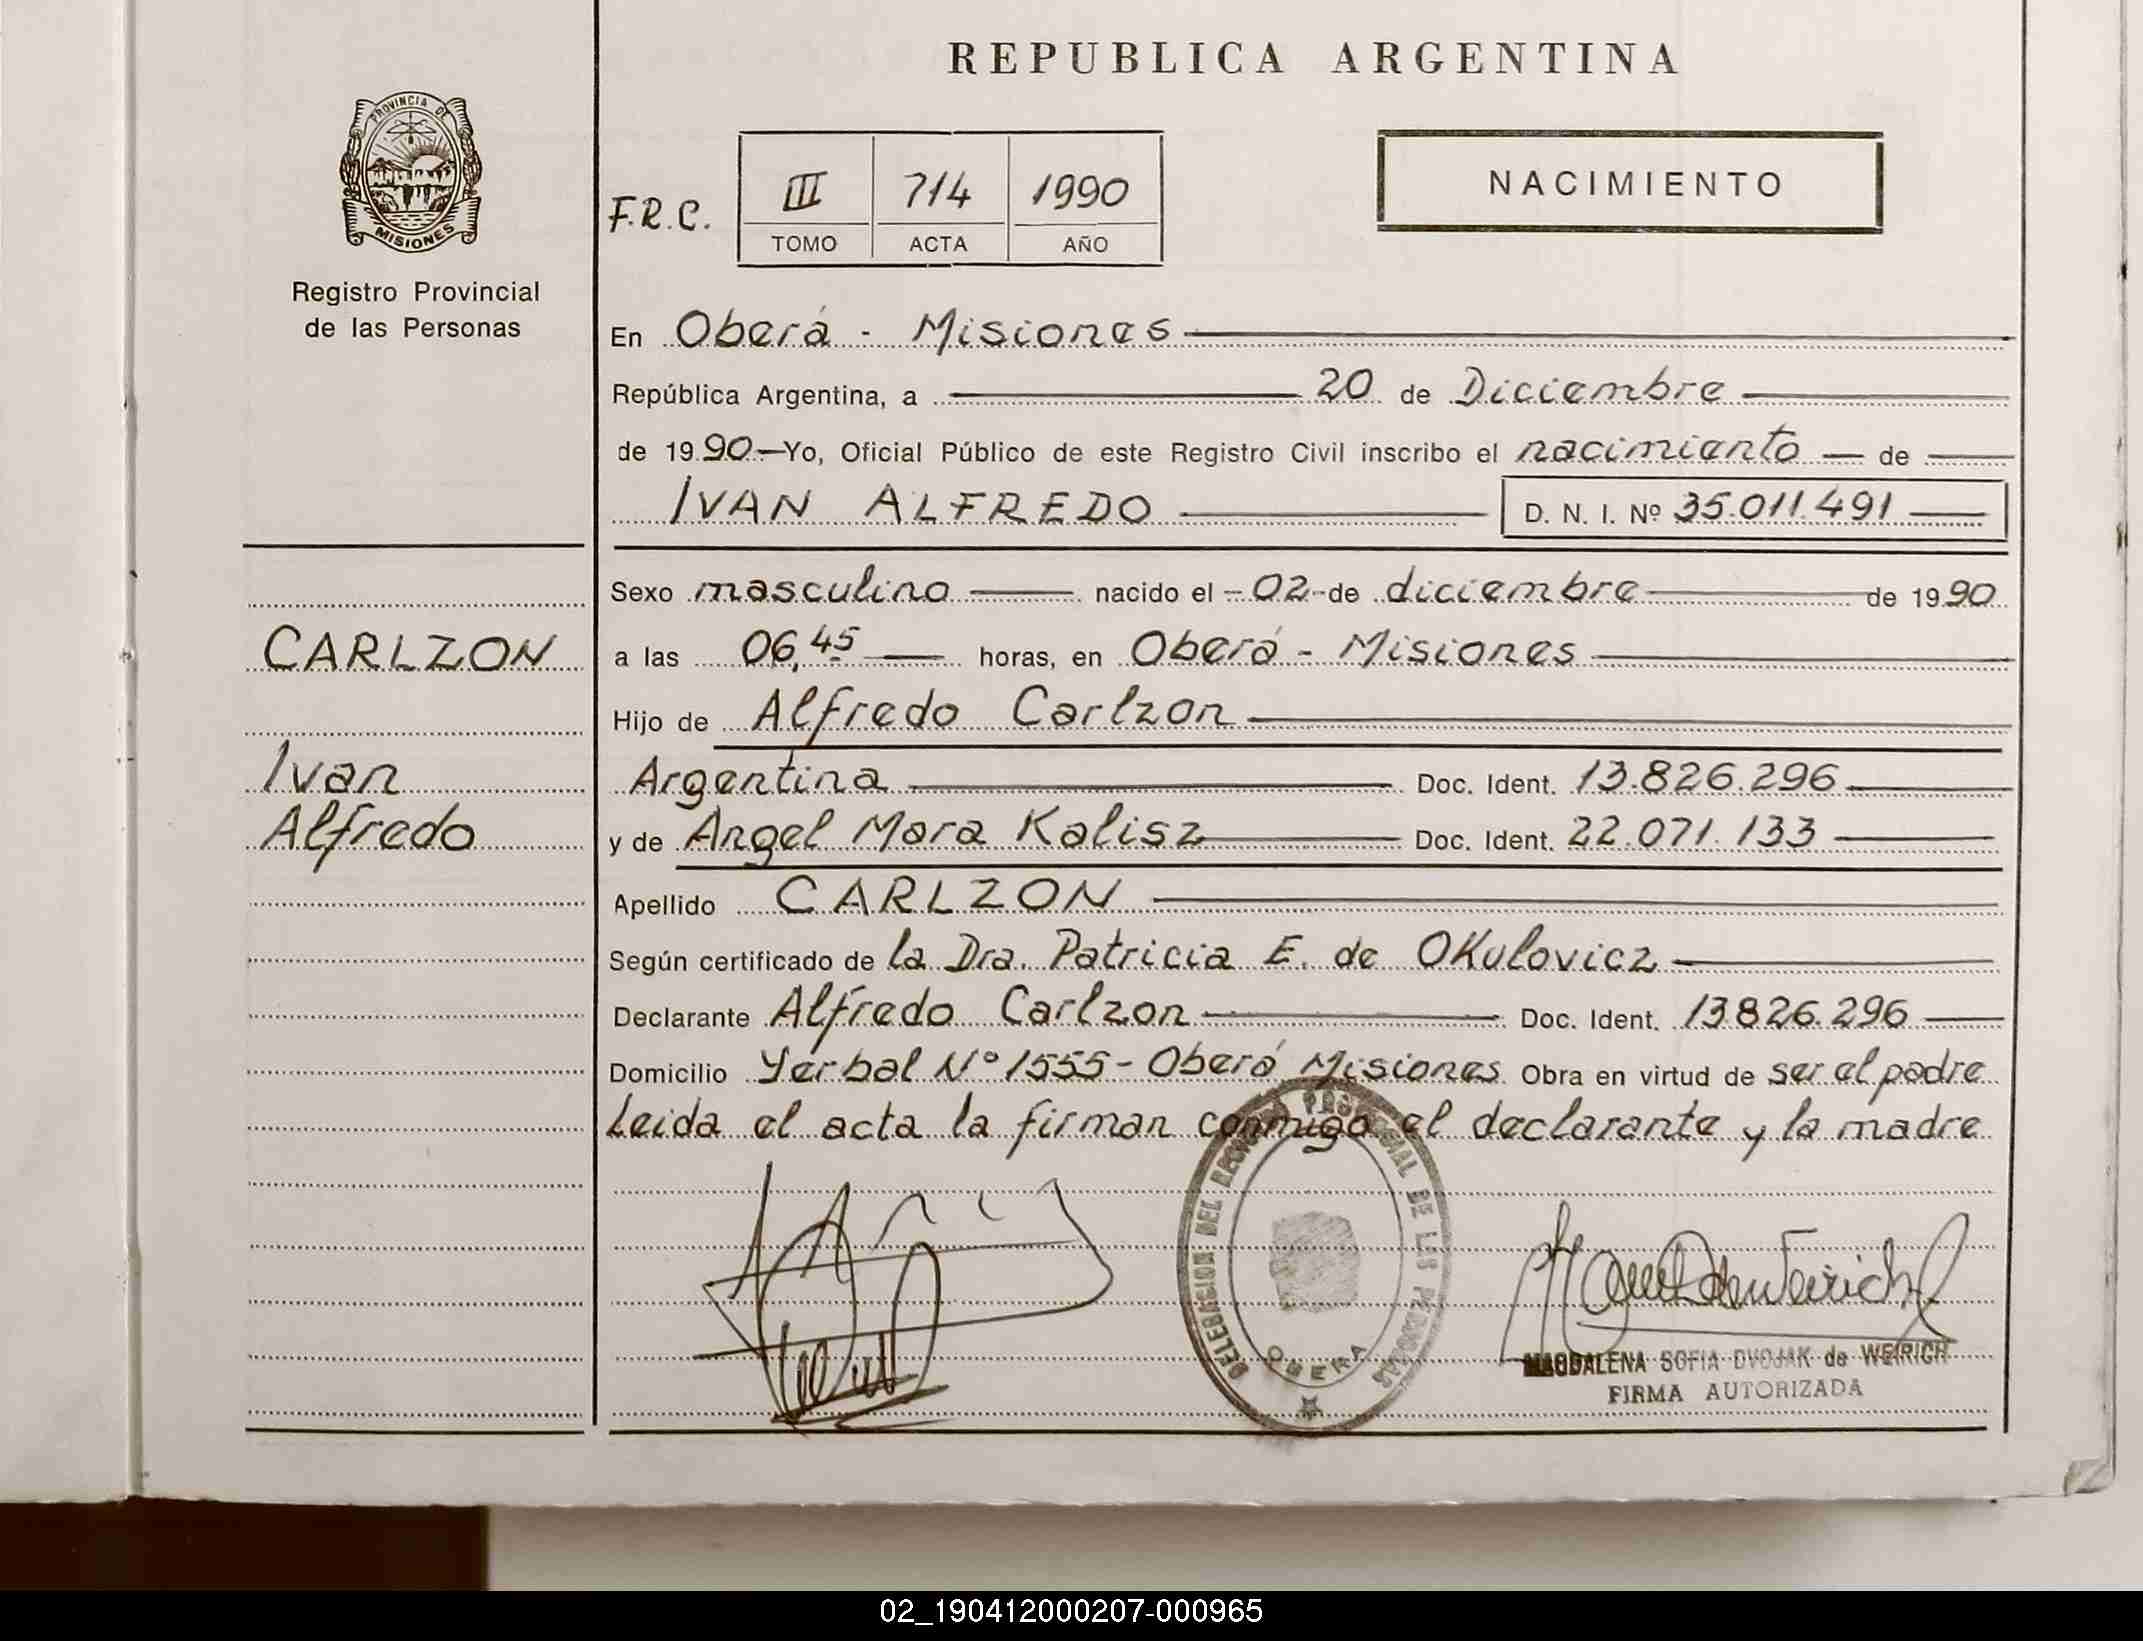 REPUBLICA ARGENTINA
PROVINCIA DE
MISIONES
Registro Provincial
de las Personas
F.R.C.
III 714 1990
TOMO ACTA AÑO
NACIMIENTO
En Oberá - Misiones
República Argentina, a 20 de Diciembre
de 1990.- Yo, Oficial Público de este Registro Civil inscribo el nacimiento de
IVAN ALFREDO D. N. I. Nº 35.011.491
Sexo masculino nacido el - 02 - de diciembre de 1990
a las 06,45 horas, en Oberá - Misiones
Hijo de Alfredo Carlzon
Argentina Doc. Ident. 13.826.296
y de Angel Mara Kalisz Doc. Ident. 22.071.133
Apellido CARLZON
Según certificado de la Dra. Patricia E. de OKulovicz
Declarante Alfredo Carlzon Doc. Ident. 13.826.296
Domicilio Yerbal Nº 1555 - Oberá Misiones Obra en virtud de ser el padre
Leida el acta la firman conmigo el declarante y la madre
CARLZON
Ivan
Alfredo
DELEGACION DEL REGISTRO PROVINCIAL DE LAS PERSONAS
OBERA
MAGDALENA SOFIA DVOJAK de WEIRICH
FIRMA AUTORIZADA
02_190412000207-000965